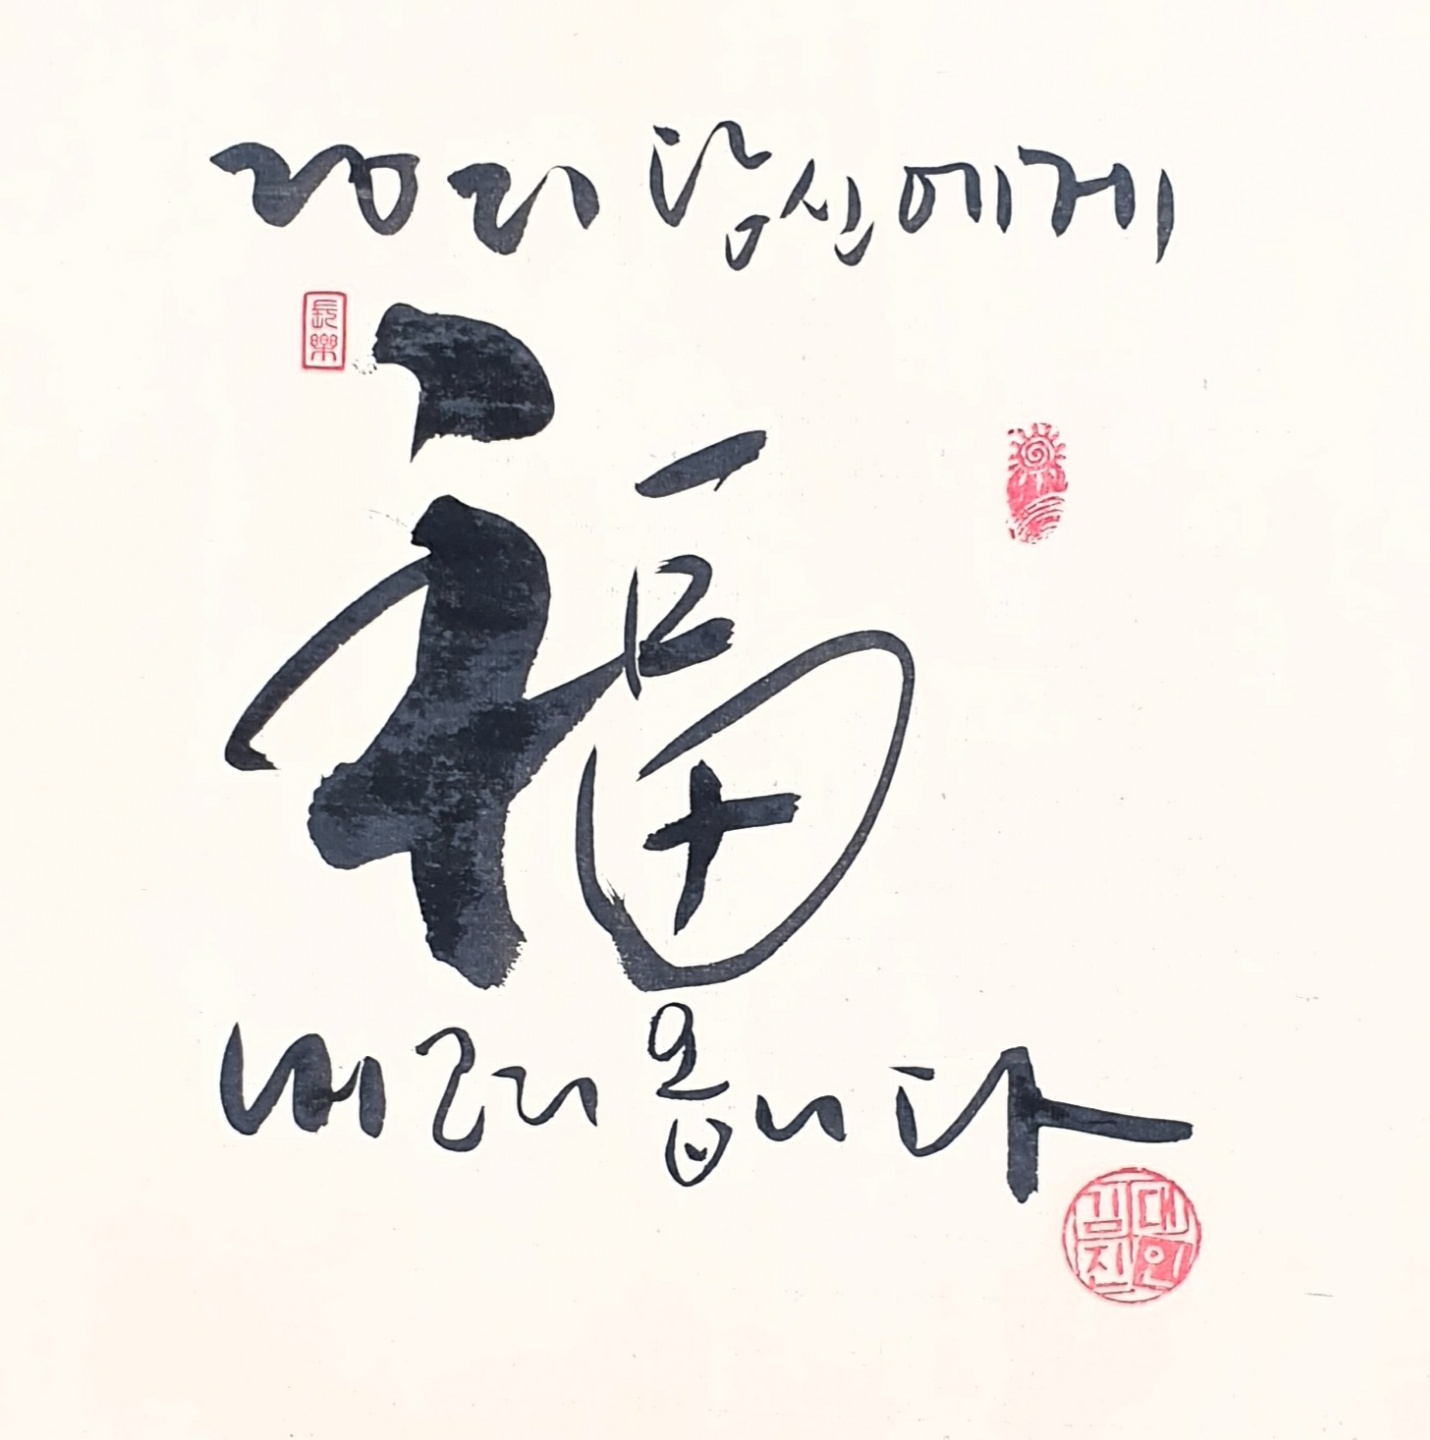 당신에게
長樂
福
내리옵니다
김대
진인